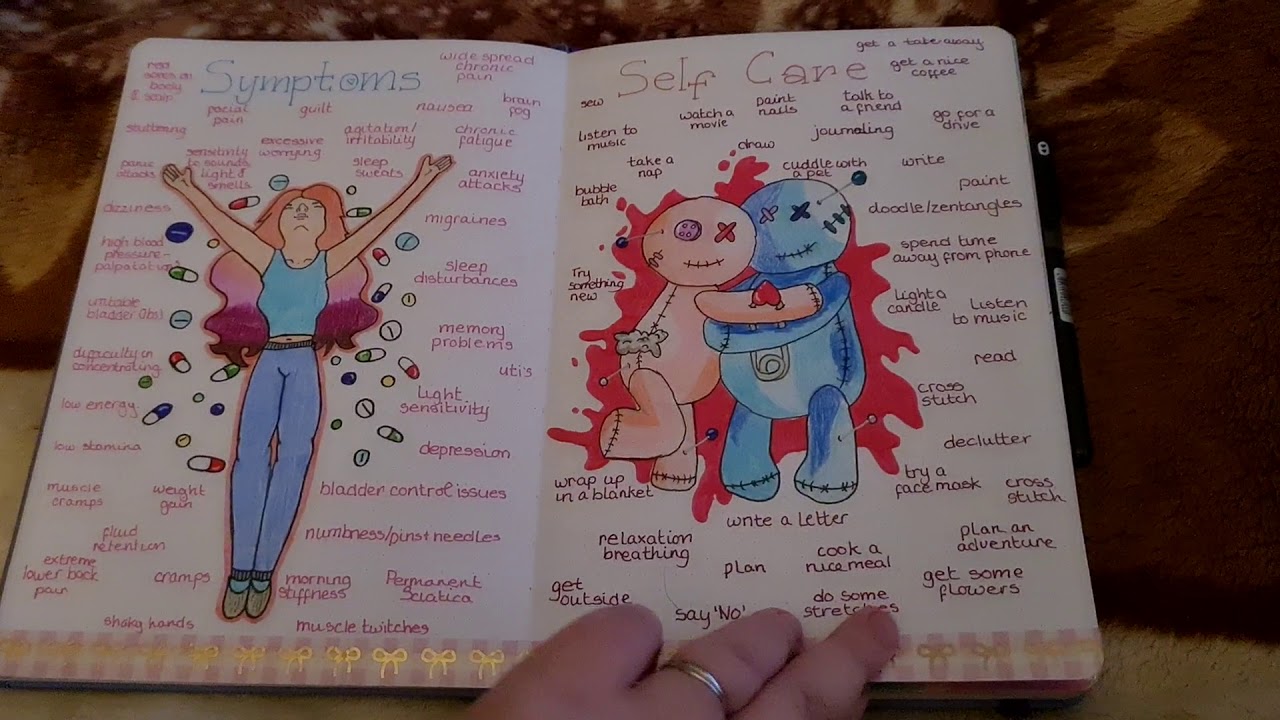 Symptoms
wide spread
chronic
pain
red
body
& scalp
facial
pain
guilt
nausea
brain
fog
stuttering
excessive
worrying
agitation/
irritability
chronic
fatigue
panic
attacks
sensitivity
to sounds
light &
smells
sleep
sweats
anxiety
attacks
dizziness
migraines
high blood
pressure -
sleep
disturbances
bladder (ibs)
memory
problems
difficulty in
concentrating
utis
low energy
light
sensitivity
low stamina
depression
muscle
cramps
weight
gain
bladder control issues
fluid
retention
numbness/pins+needles
extreme
lower back
pain
cramps
morning
stiffness
Permanent
Sciatica
shaky hands
muscle twitches
Self Care
get a takeaway
get a nice
coffee
sew
watch a
movie
paint
nails
talk to
a friend
go for a
drive
listen to
music
draw
journaling
take a
nap
cuddle with
a pet
write
bubble
bath
paint
doodle/zentangles
spend time
away from phone
Try
something
new
Light a
candle
Listen
to music
read
cross
stitch
declutter
wrap up
in a blanket
try a
face mask
cross
stitch
write a letter
relaxation
breathing
plan
cook a
nice meal
plan an
adventure
get
outside
say 'No'
do some
stretches
get some
flowers